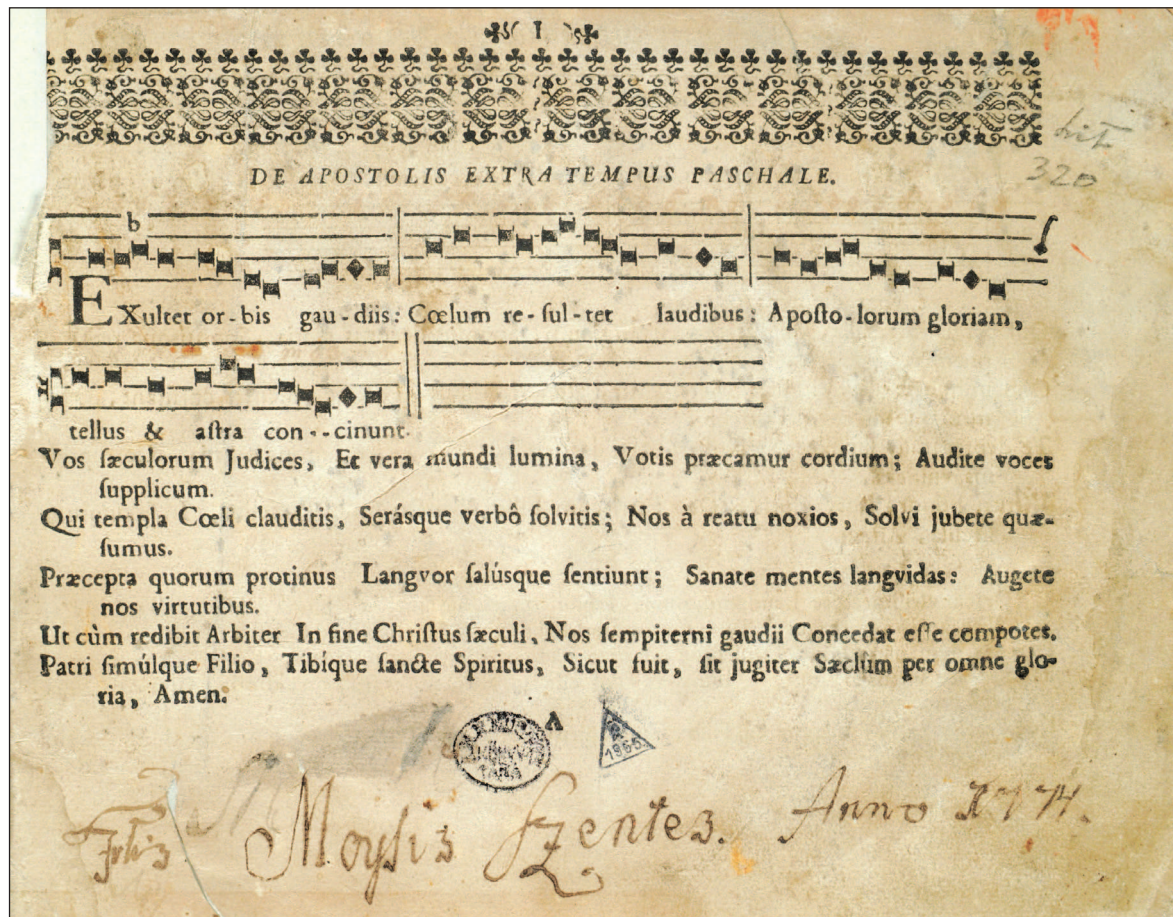 I
Lit
320
DE APOSTOLIS EXTRA TEMPUS PASCHALE.
b
EXultet or-bis gau-diis: Cœlum re-ſul-tet laudibus: Apoſto-lorum gloriam,
tellus & aſtra con--cinunt.
Vos ſæculorum Judices, Et vera mundi lumina, Votis præcamur cordium; Audite voces
ſupplicum.
Qui templa Cœli clauditis, Serásque verbô ſolvitis; Nos à reatu noxios, Solvi jubete quæ-
ſumus.
Præcepta quorum protinus Langvor ſalúsque ſentiunt; Sanate mentes langvidas: Augete
nos virtutibus.
Ut cùm redibit Arbiter In fine Chriſtus ſæculi, Nos ſempiterni gaudii Concedat eſſe compotes.
Patri ſimúlque Filio, Tibíque ſancte Spiritus, Sicut fuit, ſit jugiter Sæclum per omne glo-
ria, Amen.
A
1955
Moysis Szentes. Anno 1774.